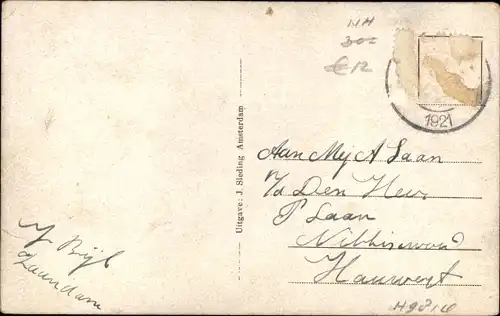 NH
300
€ 12
1921
Uitgave: J. Sleding Amsterdam
Aan Mej A Laan
p/a Den Heer
P Laan
Nibbixwoud
Hauwert
Y Bijl
Zaandam